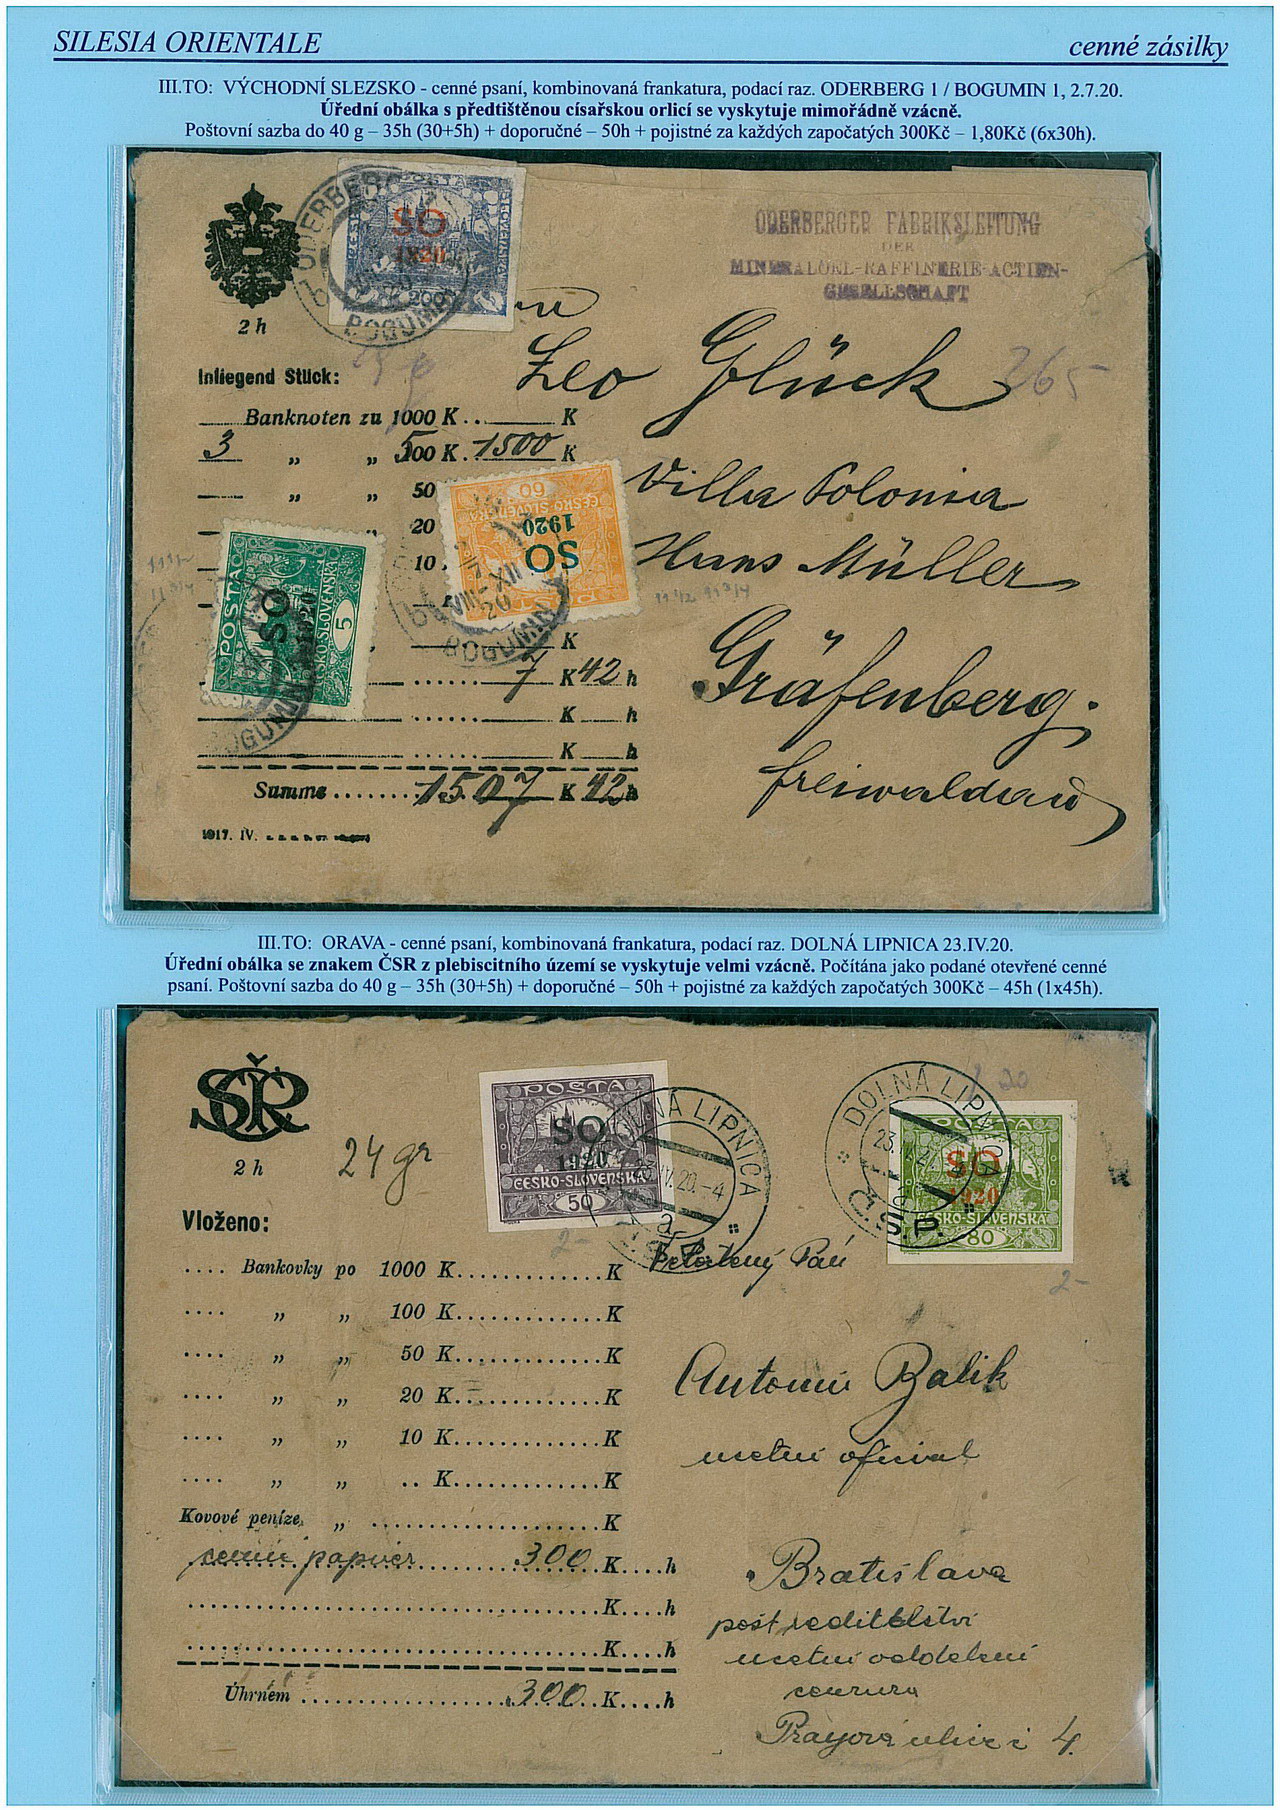 SILESIA ORIENTALE cenné zásilky
III.TO: VÝCHODNÍ SLEZSKO - cenné psaní, kombinovaná frankatura, podací raz. ODERBERG 1 / BOGUMIN 1, 2.7.20.
Úřední obálka s předtištěnou císařskou orlicí se vyskytuje mimořádně vzácně.
Poštovní sazba do 40 g – 35h (30+5h) + doporučné – 50h + pojistné za každých započatých 300Kč – 1,80Kč (6x30h).
ODERBERG
POSTA
SO
1920
200
BOGUMIN
ODERBERGER FABRIKSLEITUNG
DER
MINERALOEL-RAFFINERIE-ACTIEN-
GESELLSCHAFT
2 h
Leo Glück
265
Inliegend Stück:
Banknoten zu 1000 K.. K
3 „ „ 500 K. 1500 K
„ „ 50
„ 20
10
Villa Polonia
Hans Müller
Gräfenberg.
freiwaldau
60
ČESKO-SLOVENSKÁ
1920
SO
BOGUMIN
11½ 11¾
POSTA
SO
1920
ČESKO-SLOVENSKÁ
5
BOGUMIN
K
7 K 42 h
K h
K h
Summe ........ 1507 K 42 h
1917. IV.
III.TO: ORAVA - cenné psaní, kombinovaná frankatura, podací raz. DOLNÁ LIPNICA 23.IV.20.
Úřední obálka se znakem ČSR z plebiscitního území se vyskytuje velmi vzácně. Počítána jako podané otevřené cenné
psaní. Poštovní sazba do 40 g – 35h (30+5h) + doporučné – 50h + pojistné za každých započatých 300Kč – 45h (1x45h).
ČSR
2 h
24 gr
POSTA
SO
1920
ČESKO-SLOVENSKÁ
50
DOLNÁ LIPNICA
23.IV.20.-4
a
Č.S.P.
POSTA
SO
1920
ČESKO-SLOVENSKÁ
80
DOLNÁ LIPNICA
Č.S.P.
20
2-
2-
Vloženo:
.... Bankovky po 1000 K.............K
.... „ „ 100 K.............K
.... „ „ 50 K.............K
.... „ „ 20 K.............K
.... „ „ 10 K.............K
.... „ „ .. K.............K
Kovové peníze „ ..................K
papier 300 K....h
K....h
K....h
Úhrnem 300 K....h
Pán
Antonín Balik
učetní oficial
Bratislava
pošt. ředitelství
učetní oddelení
4.